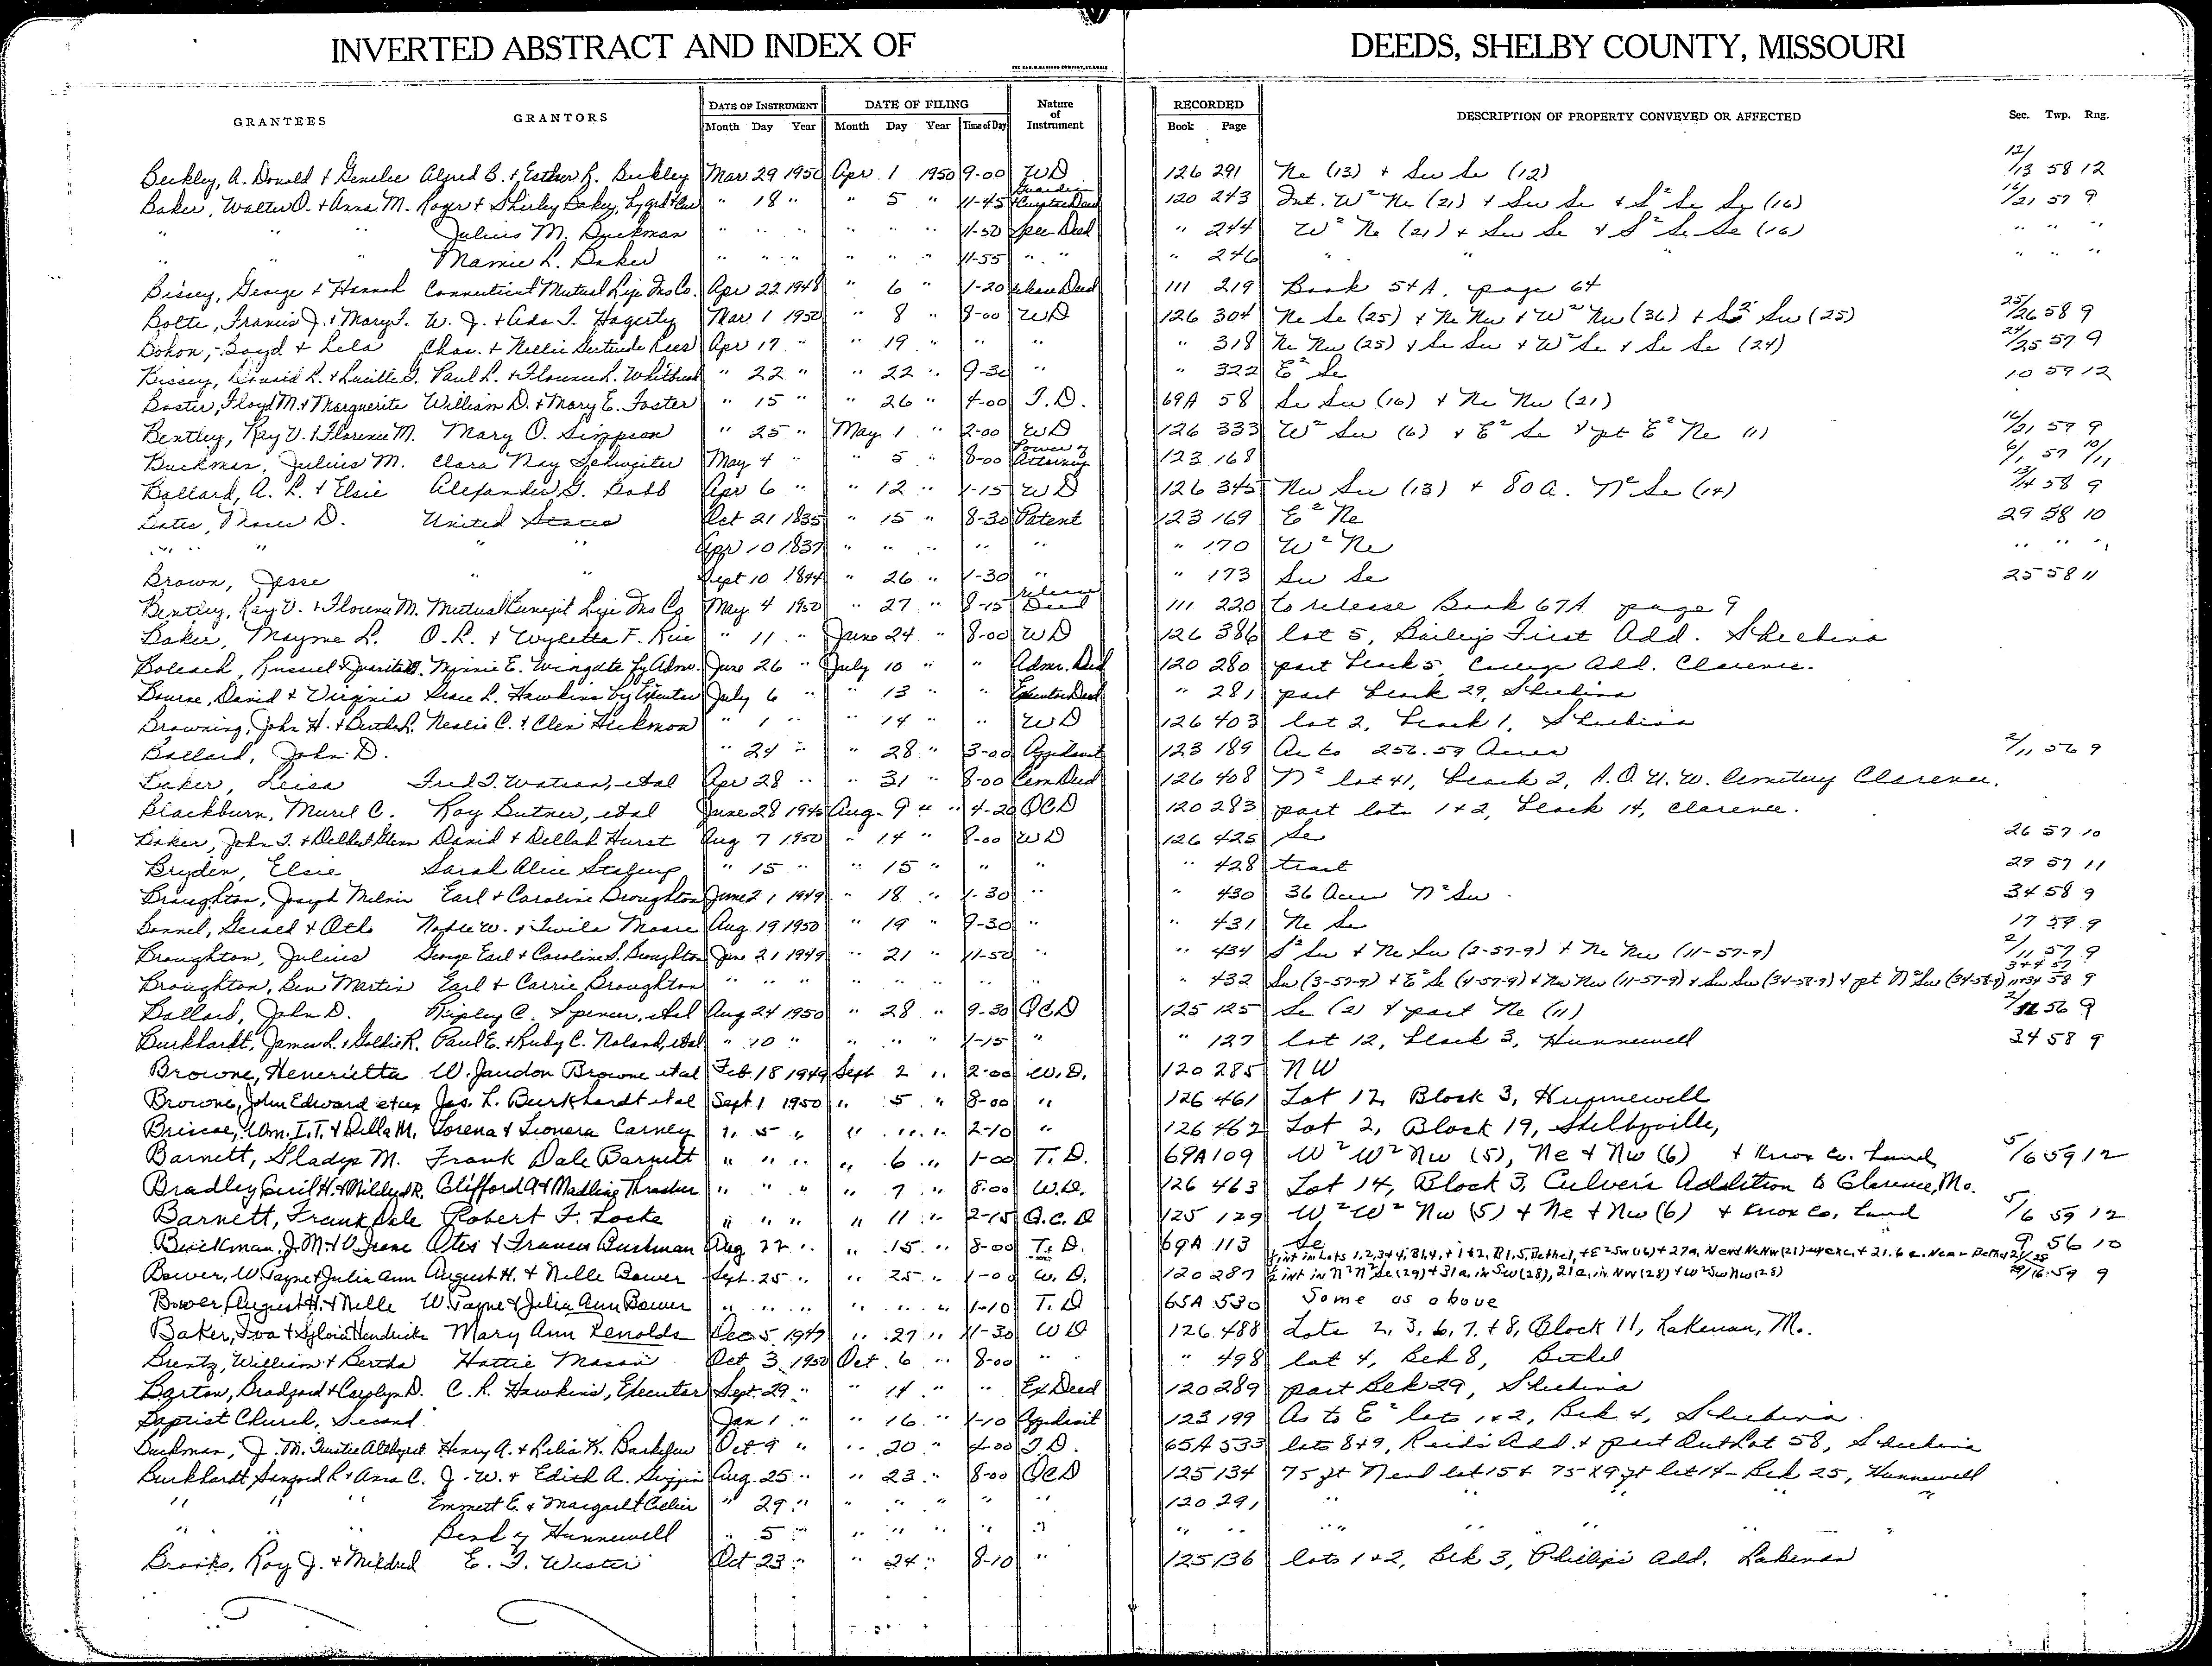 INVERTED ABSTRACT AND INDEX OF DEEDS, SHELBY COUNTY, MISSOURI
GRANTEES GRANTORS DATE OF INSTRUMENT DATE OF FILING Nature of Instrument RECORDED DESCRIPTION OF PROPERTY CONVEYED OR AFFECTED Sec. Twp. Rng.
Month Day Year Month Day Year Time of Day Book Page
Beckley, A. Donald & Genelie Alfred B. & Esther R. Beckley Mar 29 1950 Apr 1 1950 9-00 WD 126 291 Ne (13) + Sw Se (12) 12/13 58 12
Baker, Walter O. & Anna M. Roger & Shirley Baker, by " 18 " " 5 " 11-45 120 243 Int. W² Ne (21) + Sw Se + S² Se Se (16) 16/21 59 9
" " " Julius M. Buckman " " " " " " 11-50 Spec. Deed " 244 W² Ne (21) + Sw Se + S² Se Se (16) " " "
" " " Mamie L. Baker " " " " " " 11-55 " " " 246 " " " " " "
Bissey, George & Hannah Connecticut Mutual Life Ins Co. Apr 22 1948 " 6 " 1-20 release Deed 111 219 Book 54A, page 64
Bolte, Francis J. & Mary F. W. J. & Ada I. Hagerty Mar 1 1950 " 8 " 8-00 WD 126 304 Ne Se (25) + Ne Nw + W² Nw (36) + S² Sw (25) 25/26 58 9
Bohon, Boyd & Lela Chas. & Nellie Gertrude Rees Apr 17 " " 19 " " " " 318 Ne Nw (25) + Se Sw + W² Se + Se Se (24) 24/25 57 9
Bissey, R. & Lucille G. Paul L. & Florence L. " 22 " " 22 " 9-30 " " 322 E² Se 10 59 12
Baster, Floyd M. & Marguerite William D. & Mary E. Foster " 15 " " 26 " 4-00 T.D. 69A 58 Se Sw (16) + Ne Nw (21)
Bentley, Ray V. & Florence M. Mary O. Simpson " 25 " May 1 " 2-00 WD 126 333 W² Sw (6) + E² Se + pt E² Ne (1) 16/21 59 9
Buckman, Julius M. Clara May Schweiter May 4 " " 5 " 8-00 Power of Attorney 123 168 6/1 57 10/11
Ballard, A. L. & Elsie Alexander G. Babb Apr 6 " " 12 " 1-15 WD 126 345 Nw Sw (13) + 80 a. N² Se (14) 13/14 58 9
Bates, Thomas D. United States Oct 21 1835 " 15 " 8-30 Patent 123 169 E² Ne 29 58 10
" " " " " Apr 10 1837 " " " " " " 170 W² Ne " " "
Brown, Jesse " " Sept 10 1844 " 26 " 1-30 " " 173 Sw Se 25 58 11
Bentley, Ray V. & Florence M. Mutual Benefit Life Ins Co May 4 1950 " 27 " 8-15 release Deed 111 220 to release Book 67A page 9
Baker, Mayme L. O. L. & Wyletta F. Rice " 11 " June 24 " 8-00 WD 126 386 lot 5, Bailey's First Add. Shelbina
Boleach, Russel & Juanita Minnie E. Wingate by Admr. June 26 " July 10 " " Admr. Deed 120 280 part block 5, College Add. Clarence.
Bourne, David & Virginia Grace L. Hawkins by Executor July 6 " " 13 " " Executor Deed " 281 part block 29, Shelbina
Browning, John H. & Bertha L. Neslie C. & Cleo Hickman " 1 " " 14 " " WD 126 403 lot 2, block 1, Shelbina
Ballard, John D. " 24 " " 28 " 3-00 Affidavit 123 189 As to 256.59 Acres 2/11 56 9
Baker, Leisa Fred T. Watson, etal Apr 28 " " 31 " 8-00 Cem Deed 126 408 N² lot 41, block 2, A.O.U.W. Cemetery Clarence.
Blackburn, Murel C. Roy Butner, etal June 28 1945 Aug. 9 " 4-20 QCD 120 283 part lots 1+2, block 14, Clarence.
Baker, John T. & Delbert Glenn David & Dellah Hurst Aug 7 1950 " 14 " 8-00 WD 126 425 Se 26 57 10
Bryden, Elsie Sarah Alice " 15 " " 15 " " " " 428 tract 29 57 11
Broughton, Joseph Melvin Earl & Caroline Broughton June 21 1949 " 18 " 1-30 " " 430 36 Acres N² Sw 34 58 9
Bonnel, Gerald & Oth Noble W. & Twila Moore Aug. 19 1950 " 19 " 9-30 " " 431 Ne Se 17 59 9
Broughton, Julius George Earl & Caroline S. Broughton June 21 1949 " 21 " 11-50 " " 434 S² Sw + Ne Sw (2-57-9) + Ne Nw (11-57-9) 2/11 57 9
Broughton, Ben Martin Earl & Carrie Broughton " " " " " " " " " 432 Sw (3-57-9) + E² Se (4-57-9) + Nw Nw (11-57-9) + Sw Sw (34-58-9) + pt N² Sw (34-58-9) 3+4 57 11+34 58 9
Ballard, John D. Ripley C. Spencer, etal Aug 24 1950 " 28 " 9-30 QCD 125 125 Se (2) + part Ne (11) 2/11 56 9
Burkhardt, James L. & Goldie R. Paul E. & Ruby C. Noland, etal " 10 " " " " 1-15 " " 127 lot 12, block 3, Hunnewell 34 58 9
Browne, Henerietta W. Jaudon Browne etal Feb. 18 1949 Sept 2 " 2-00 W.D. 120 285 NW
Browne, John Edward etux Jas. L. Burkhardt etal Sept. 1 1950 " 5 " 8-00 " 126 461 Lot 12, Block 3, Hunnewell
Briscoe, Wm. I.T. & Della M. Lorena & Leonora Carney " 5 " " " " 2-10 " 126 462 Lot 2, Block 19, Shelbyville,
Barnett, Gladys M. Frank Dale Barnett " " " " 6 " 1-00 T.D. 69A 109 W² W² Nw (5), Ne + Nw (6) + Knox Co. Land 5/6 59 12
Bradley, Cecil H. & Mildred R. Clifford A & Madline Thrasher " " " " 7 " 8-00 W.D. 126 463 Lot 14, Block 3, Culver's Addition to Clarence, Mo.
Barnett, Frank Dale Robert F. Locke " " " " 11 " 2-15 Q.C.D 125 129 W² W² Nw (5) + Ne + Nw (6) + Knox Co, Land 5/6 59 12
Buckman, J.M. & O. Irene Otes & Frances Bushman Aug 22 " " 15 " 8-00 T.D. 69A 113 Se 9 56 10
Bower, W. Payne & Julia Ann August H. & Nelle Bower Sept. 25 " " 25 " 1-00 W.D. 120 287 ½ int in Lots 1,2,3+4, Bl 4, + 1+2, Bl 5, Bethel, + E² Sw (16) + 27a, N end Ne Nw (21) exc. + 21.6 a. Near Bethel
½ int in N² N² Se (29) + 31a. in Sw (28), 21a, in NW (28) + W² Sw Nw (28) 59 9
Bower, August H. & Nelle W. Payne & Julia Ann Bower " " " " " " 1-10 T.D 65A 530 Same as above
Baker, Iva & Sylvia Hendricks Mary Ann Renolds Dec 5 1947 " 27 " 11-30 WD 126 488 Lots 2, 3, 6, 7, + 8, Block 11, Lakenan, Mo.
Brentz, William & Bertha Hattie Mason Oct 3 1950 Oct. 6 " 8-00 " " " 498 lot 4, Blk 8, Bethel
Barton, Bradford & Carolyn D. C. R. Hawkins, Executor Sept. 29 " " 14 " " Ex Deed 120 289 part Blk 29, Shelbina
Baptist Church, Second Jan 1 " " 16 " 1-10 Affidavit 123 199 As to E² lots 1+2, Blk 4, Shelbina
Buckman, J. M. Trustee Henry A. & Lelia K. Oct 9 " " 20 " 4-00 T.D. 65A 533 lots 8+9, Reid's Add. + part Out Lot 58, Shelbina
Burkhardt, Sanford R. & Anna C. J. W. & Edith A. Aug. 25 " " 23 " 8-00 QCD 125 134 75 ft N end lot 15 + 75 x 9 ft lot 14 - Blk 25, Hunnewell
" " " Emmett E. & Margaret " 29 " " " " " " 120 291 " " " "
" " " Bank of Hunnewell " 5 " " " " " " " " " " " "
Brooks, Roy J. & Mildred E. T. Wester Oct 23 " " 24 " 8-10 " 125 136 lots 1+2, Blk 3, Phillips Add. Lakenan